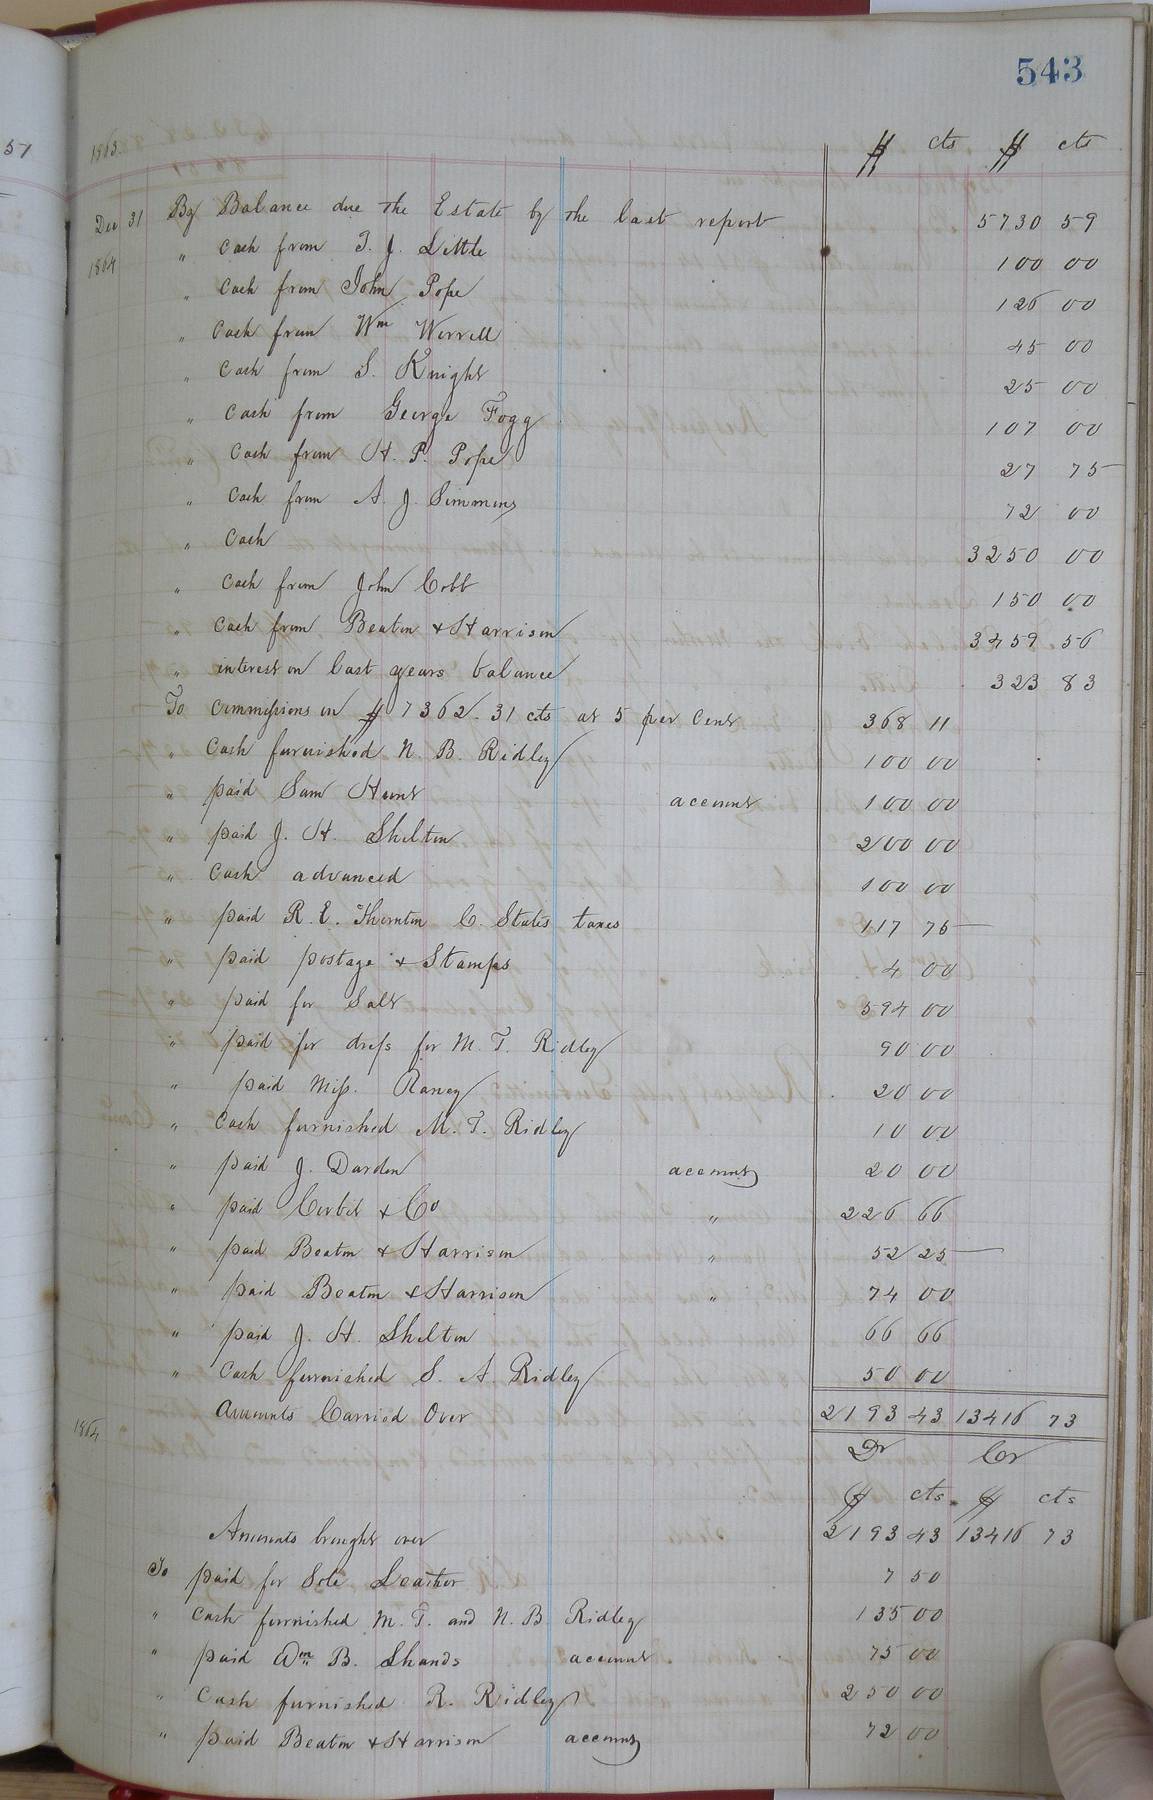 543
57
1863. $ cts $ cts
Dec 31 By Balance due the Estate by the last report 5730 59
1864 " Cash from T. J. Little 100 00
" Cash from John Pope 126 00
" Cash from Wm Worrell 45 00
" Cash from S. Knight 25 00
" Cash from George Fogg 107 00
" Cash from H. P. Pope 27 75
" Cash from A. J. Simmons 72 00
" Cash 3250 00
" Cash from John Cobb 150 00
" Cash from Beaton & Harrison 3459 56
" interest on last years balance 323 83
To Commissions on $7362.31 cts at 5 per Cent 368 11
" Cash furnished N. B. Ridley 100 00
" paid Sam Hunt account 100 00
" paid J. H. Shelton 200 00
" Cash advanced 100 00
" paid R. E. Thornton C. States taxes 117 75
" paid postage & Stamps 4 00
" paid for Salt 594 00
" paid for dress for M. T. Ridley 90 00
" paid Miss. Raney 20 00
" Cash furnished M. T. Ridley 10 00
" paid J. Darden account 20 00
" paid Corbit & Co " 226 66
" paid Beaton & Harrison " 52 25
" paid Beaton & Harrison " 74 00
" paid J. H. Shelton 66 66
" Cash furnished S. A. Ridley 50 00
Amounts Carried Over 2193 43 13416 73
1864 Dr Cr
$ cts. $ cts
Amounts brought over 2193 43 13416 73
To paid for Sole Leather 7 50
" Cash furnished M. T. and N. B. Ridley 135 00
" paid Wm B. Shands account 75 00
" Cash furnished R. Ridley 250 00
" paid Beaton & Harrison account 72 00